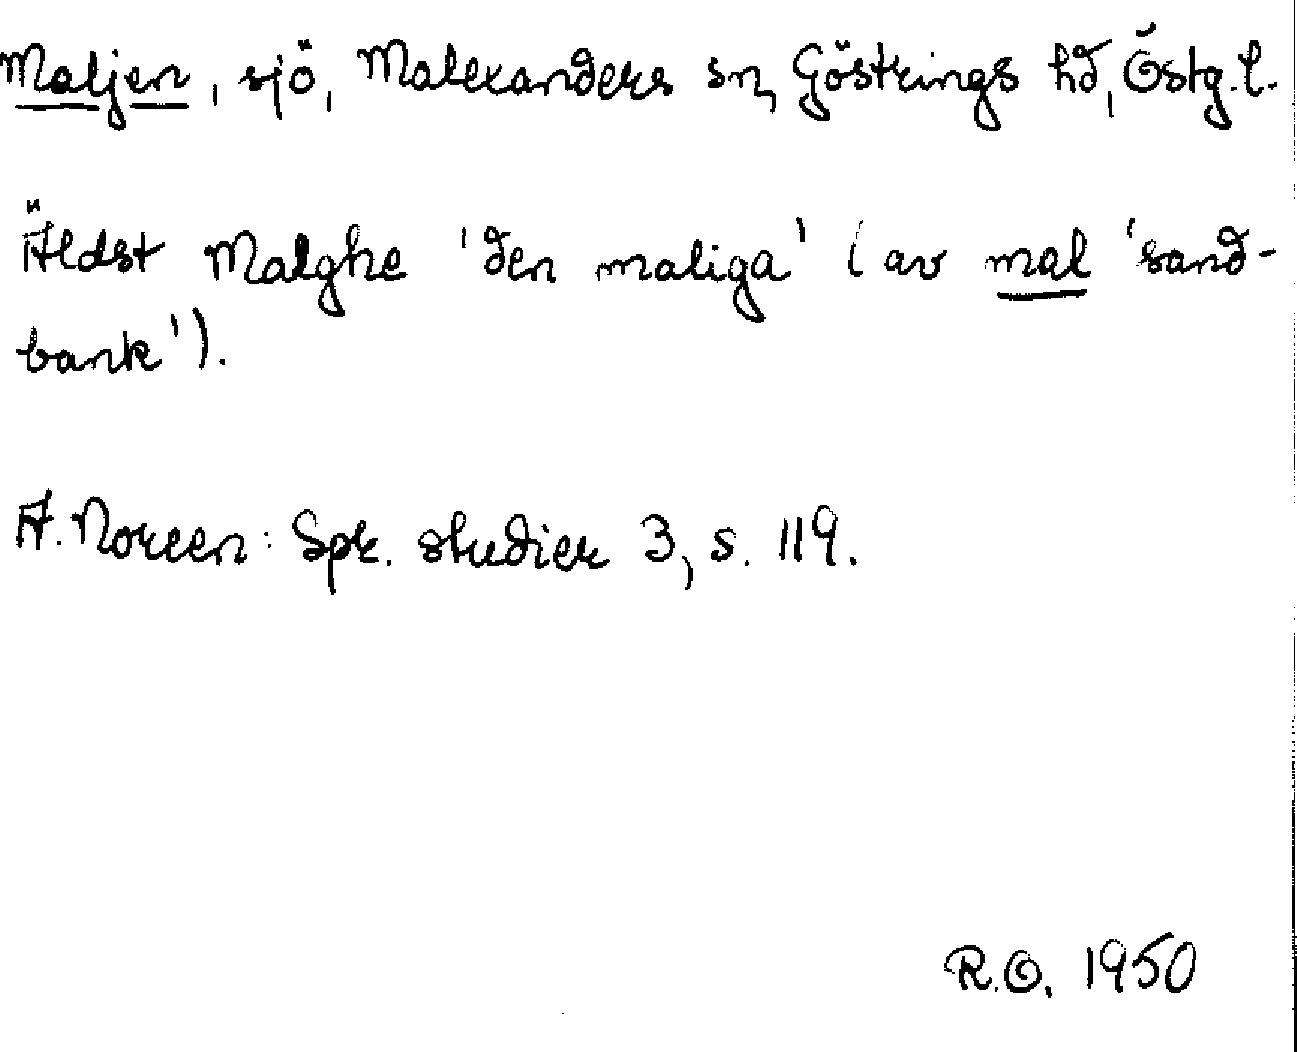 Maljen, sjö, Malexanders sn, Göstrings hd, Östg.l.
Äldst Malghe 'den maliga' (av mal 'sand-
bank').
A. Noreen: Spr. studier 3, s. 119.
R.O. 1950